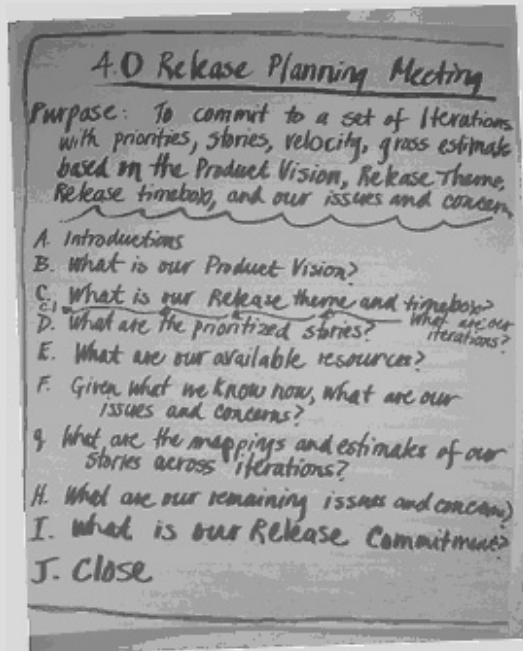 4.0 Release Planning Meeting
Purpose: To commit to a set of Iterations
with priorities, stories, velocity, gross estimate
based on the Product Vision, Release Theme,
Release timebox, and our issues and concern
A. Introductions
B. What is our Product Vision?
C. What is our Release theme and timebox?
C.1 What are our
iterations?
D. What are the prioritized stories?
E. What are our available resources?
F. Given what we know now, what are our
issues and concerns?
g What are the mappings and estimates of our
stories across iterations?
H. What are our remaining issues and concerns
I. What is our Release Commitment?
J. Close